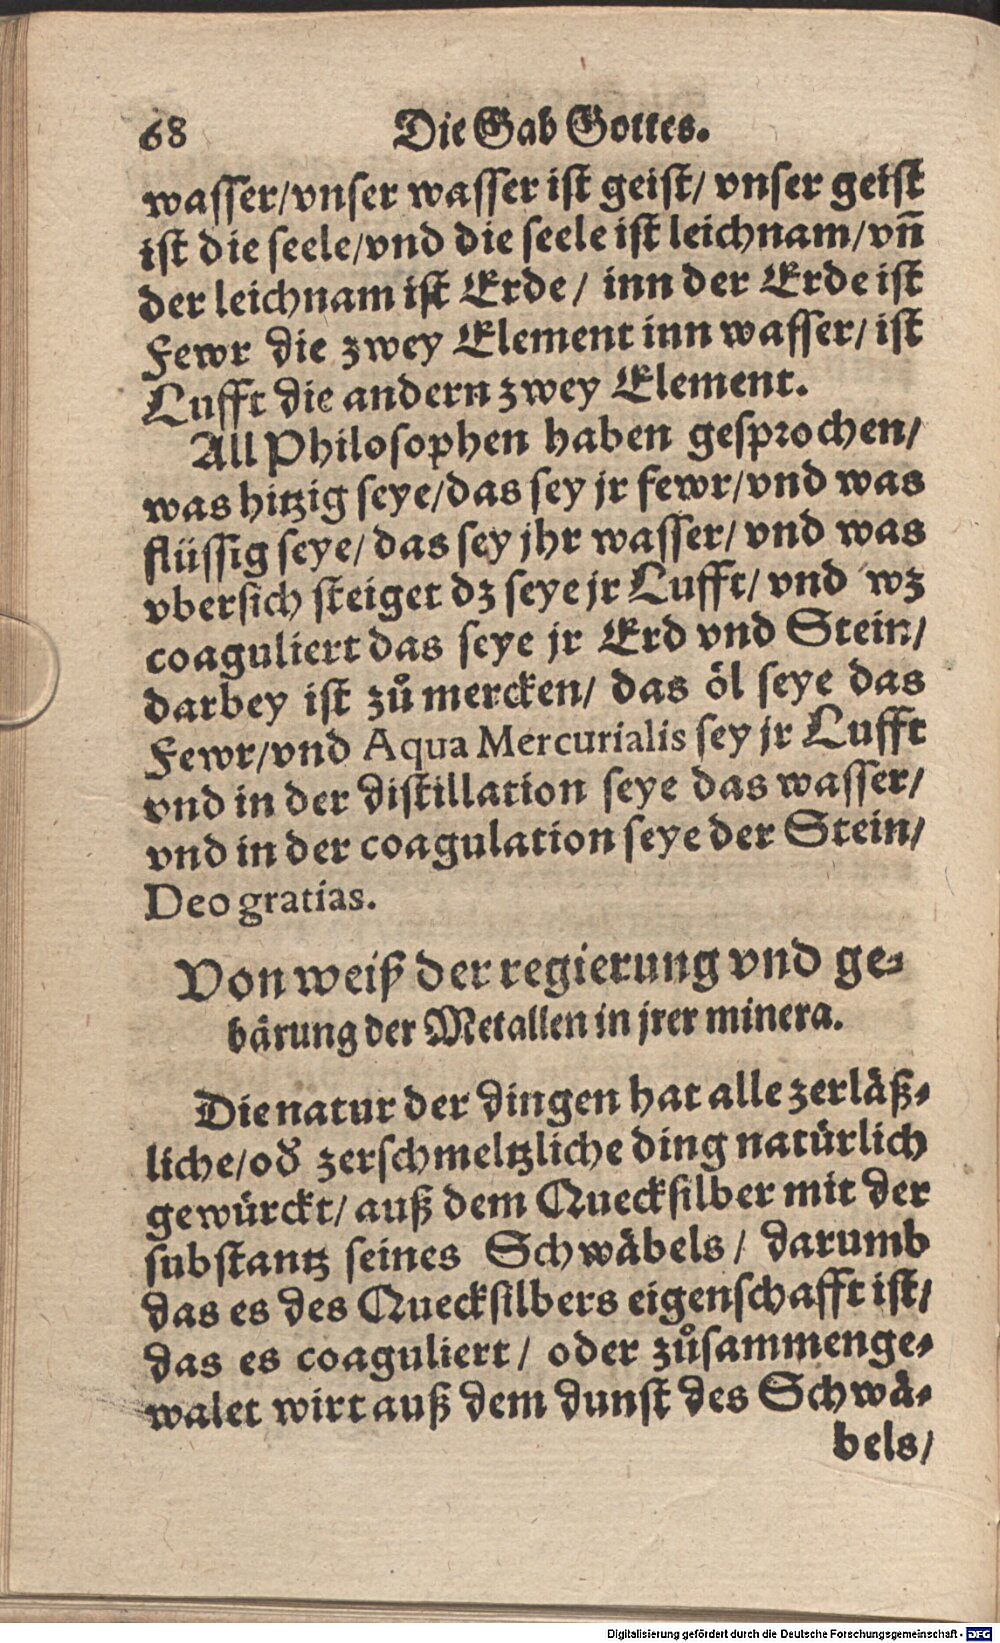 68 Die Gab Gottes.
wasser/vnser wasser ist geist/ vnser geist
ist die seele/vnd die seele ist leichnam/vñ
der leichnam ist Erde/ inn der Erde ist
Fewr die zwey Element inn wasser/ ist
Lufft die andern zwey Element.
All Philosophen haben gesprochen/
was hitzig seye/das sey jr fewr/vnd was
flüssig seye/ das sey jhr wasser/ vnd was
vbersich steiget dz seye jr Lufft/ vnd wz
coaguliert das seye jr Erd vnd Stein/
darbey ist zů mercken/ das öl seye das
Fewr/vnd Aqua Mercurialis sey jr Lufft
vnd in der distillation seye das wasser/
vnd in der coagulation seye der Stein/
Deo gratias.
Von weiß der regierung vnd ge-
bärung der Metallen in jrer minera.
Die natur der dingen hat alle zerläß-
liche/od zerschmeltzliche ding natürlich
gewürckt/ auß dem Quecksilber mit der
substantz seines Schwäbels/ darumb
das es des Quecksilbers eigenschafft ist/
das es coaguliert/ oder zůsammenge-
walet wirt auß dem dunst des Schwä-
bels/
Digitalisierung gefördert durch die Deutsche Forschungsgemeinschaft - DFG